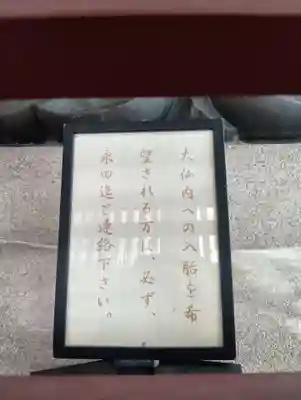 大仏内への入胎を希
望される方は、必ず、
永田迄ご連絡下さい。